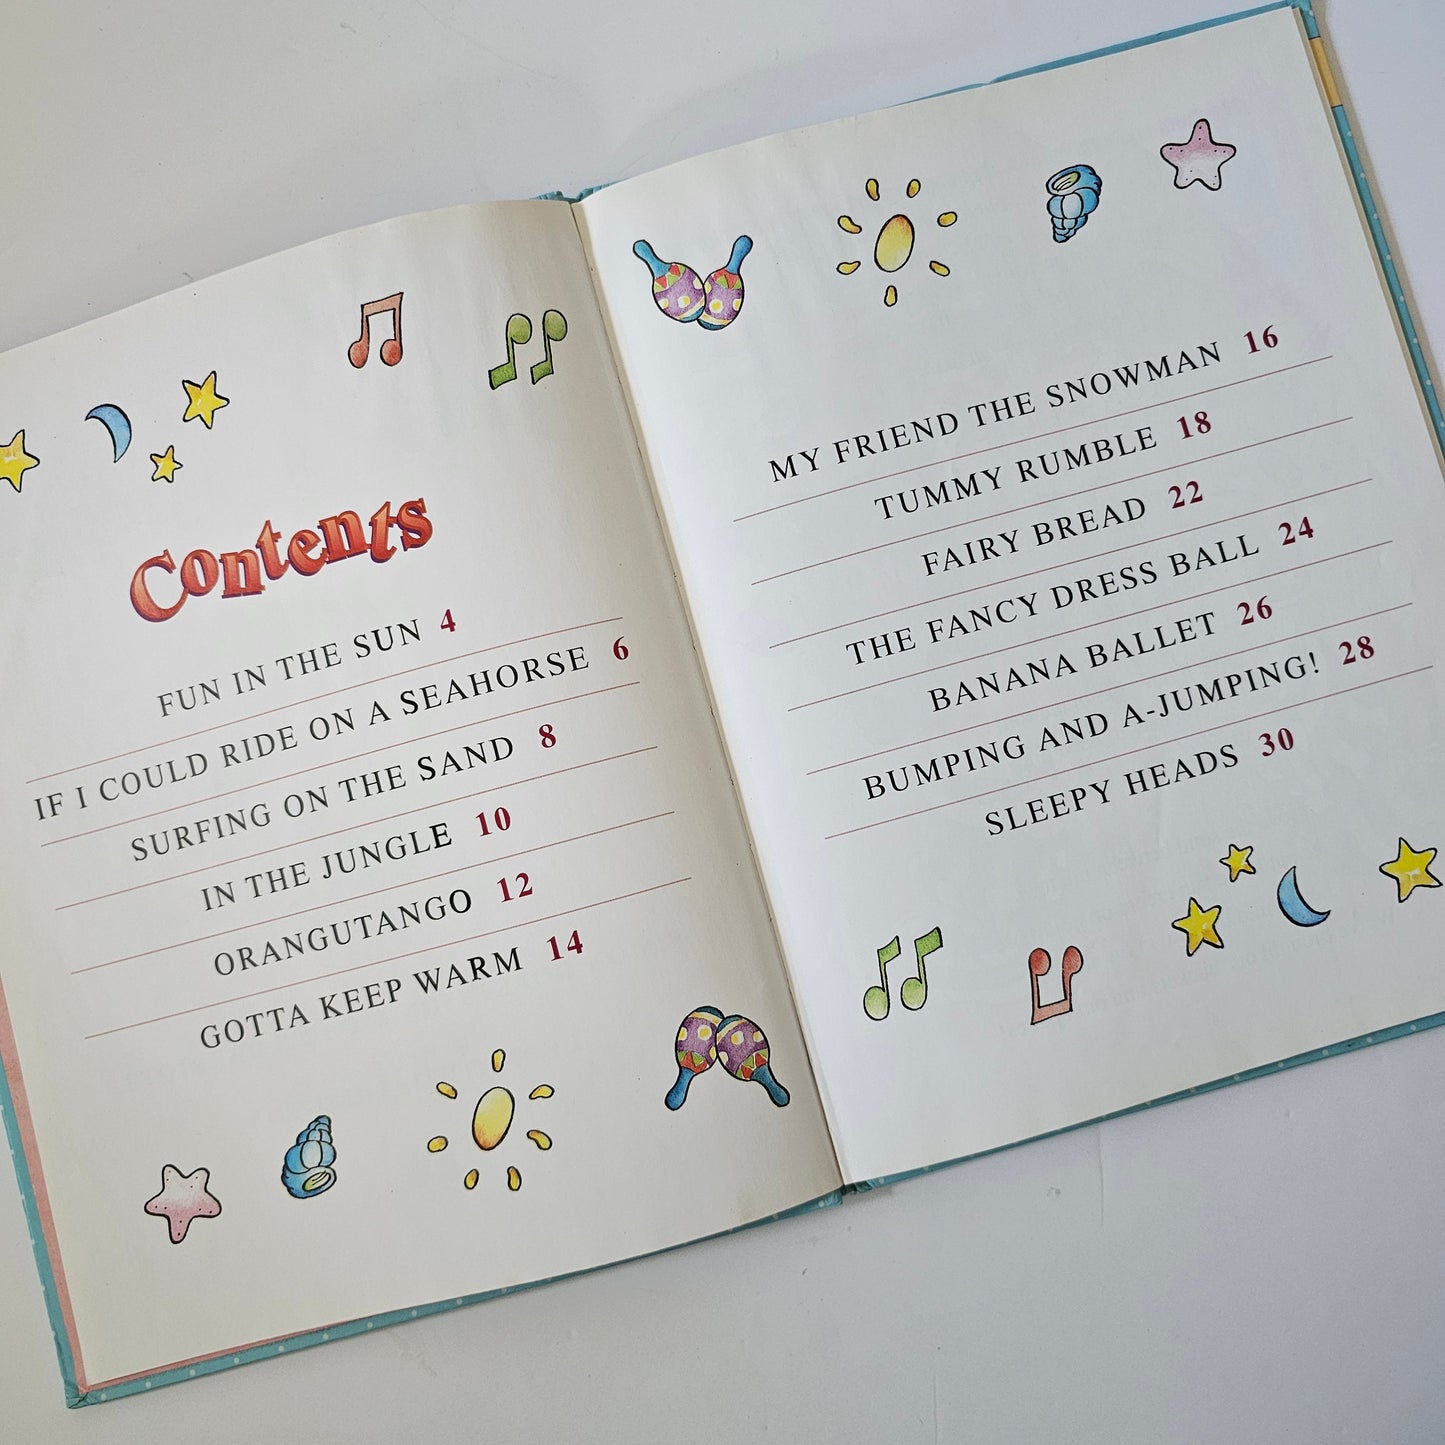 Contents
FUN IN THE SUN 4
IF I COULD RIDE ON A SEAHORSE 6
SURFING ON THE SAND 8
IN THE JUNGLE 10
ORANGUTANGO 12
GOTTA KEEP WARM 14
MY FRIEND THE SNOWMAN 16
TUMMY RUMBLE 18
FAIRY BREAD 22
THE FANCY DRESS BALL 24
BANANA BALLET 26
BUMPING AND A-JUMPING! 28
SLEEPY HEADS 30